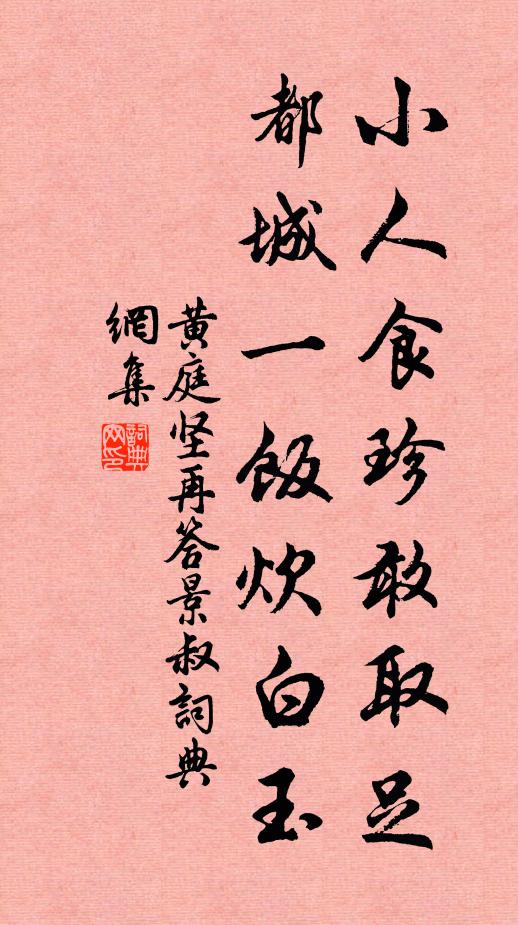 小人食珍敢取足
都城一飯炊白玉
黄庭坚再答景叔詞典
網集
詞典網印